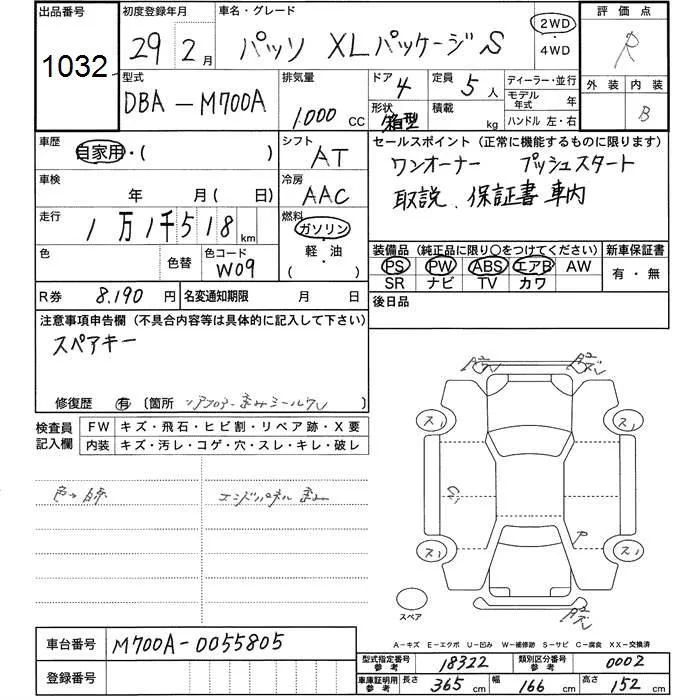 出品番号 初度登録年月 車名・グレード 評価点
1032 29年 2月 パッソ XLパッケージS 2WD R
4WD
型式 排気量 ドア 4 定員 5人 ディーラー・並行 外装 内装
DBA-M700A 1.000 CC 形状 箱型 積載 kg モデル年式 年 B
ハンドル 左・右
車歴 シフト セールスポイント(正常に機能するものに限ります)
自家用・( ) AT ワンオーナー プッシュスタート
車検 年 月(日) 冷房 AAC 取説、保証書車内
走行 1万1千518km 燃料 ガソリン
軽・油
( )
色 色替 色コード W09
装備品(純正品に限り〇をつけてください) 新車保証書
PS PW ABS エアB AW 有・無
SR ナビ TV カワ
R券 8.190円 名変通知期限 月 日 後日品
注意事項申告欄(不具合内容等は具体的に記入して下さい)
スペアキー
修復歴 有 〔箇所
検査員記入欄 FW キズ・飛石・ヒビ割・リペア跡・X要
内装 キズ・汚レ・コゲ・穴・スレ・キレ・破レ
エンドパネル歪み
ス1 ス1
ス1 ス1
P
スペア
A-キズ E-エクボ U-凹み W-補修跡 S-サビ C-腐食 XX-交換済
車台番号 M700A-0055805
登録番号
型式指定番号参考 18322 類別区分番号参考 0002
車庫証明用参考 長さ 365cm 幅 166cm 高さ 152cm